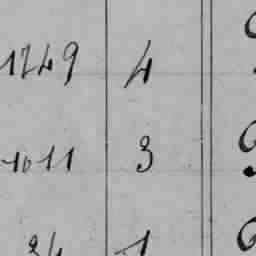 1249 4
1011 3
34 1